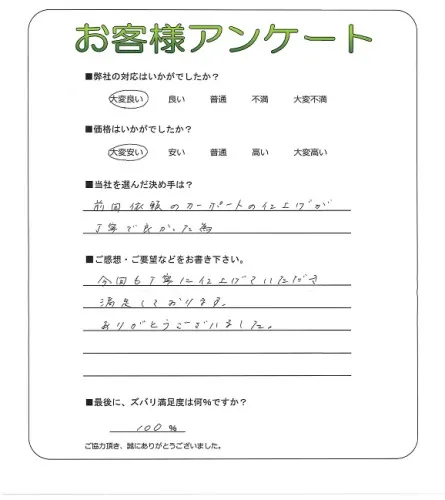 お客様アンケート
■弊社の対応はいかがでしたか？
大変良い 良い 普通 不満 大変不満
■価格はいかがでしたか？
大変安い 安い 普通 高い 大変高い
■当社を選んだ決め手は？
前回依頼のカーポートの仕上げが
丁寧で良かった為
■ご感想・ご要望などをお書き下さい。
今回も丁寧に仕上げていただき
満足しております。
ありがとうございました。
■最後に、ズバリ満足度は何％ですか？
100 %
ご協力頂き、誠にありがとうございました。